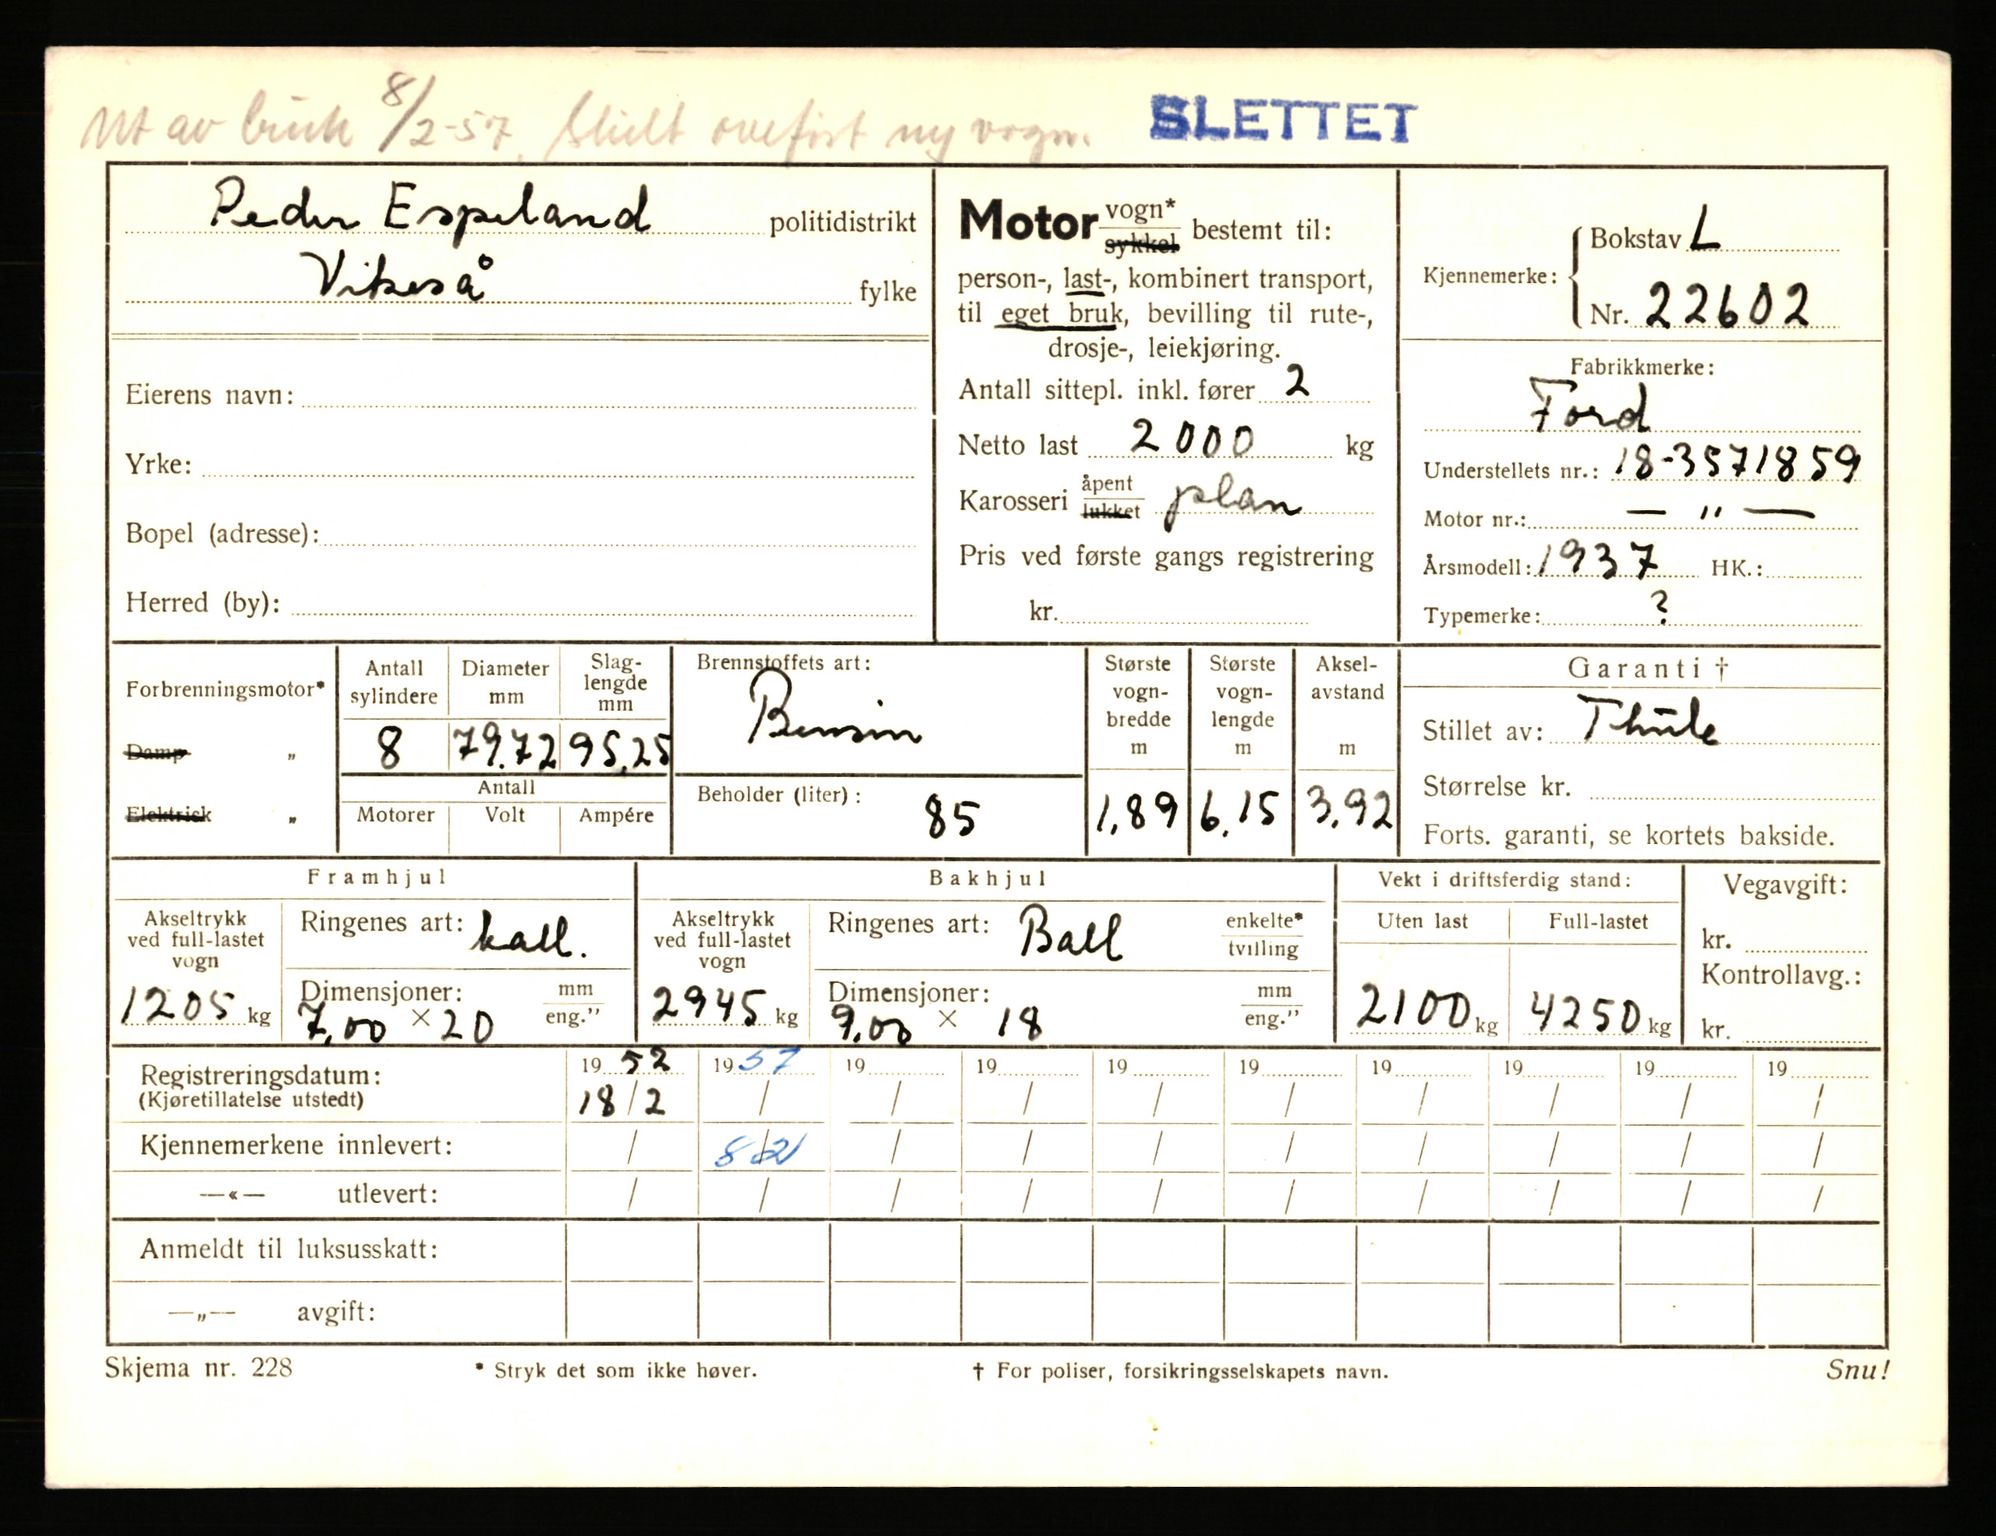 Ut av bruk 8/2-57. Skilt overført ny vogn. SLETTET
Peder Espeland politidistrikt
Vikeså fylke
Eierens navn:
Yrke:
Bopel (adresse):
Herred (by):
Motor vogn* sykkel bestemt til:
person-, last-, kombinert transport,
til eget bruk, bevilling til rute-,
drosje-, leiekjøring.
Antall sittepl. inkl. fører 2
Netto last 2000 kg
Karosseri åpent lukket plan
Pris ved første gangs registrering
kr.
Kjennemerke: Bokstav L
Nr. 22602
Fabrikkmerke:
Ford
Understellets nr.: 18-3571859
Motor nr.: — " —
Årsmodell: 1937 HK.:
Typemerke: ?
Forbrenningsmotor*
Damp "
Elektrisk "
Antall sylindere Diameter mm Slag-lengde mm
8 79.72 95.25
Antall
Motorer Volt Ampére
Brennstoffets art:
Bensin
Beholder (liter): 85
Største vogn-bredde m 1,89
Største vogn-lengde m 6,15
Aksel-avstand m 3,92
Garanti †
Stillet av: Thule
Størrelse kr.
Forts. garanti, se kortets bakside.
Framhjul
Akseltrykk ved full-lastet vogn 1205 kg
Ringenes art: ball.
Dimensjoner: mm eng."
7,00 × 20
Bakhjul
Akseltrykk ved full-lastet vogn 2945 kg
Ringenes art: Ball enkelte* tvilling
Dimensjoner: mm eng."
9,00 × 18
Vekt i driftsferdig stand:
Uten last Full-lastet
2100 kg 4250 kg
Vegavgift:
kr.
Kontrollavg.:
kr.
Registreringsdatum: 19 52 19 57 19 19 19 19 19 19 19 19
(Kjøretillatelse utstedt) 18/2 / / / / / / / / /
Kjennemerkene innlevert: / 8/2 / / / / / / / /
—«— utlevert: / / / / / / / / / /
Anmeldt til luksusskatt:
—„— avgift:
Skjema nr. 228 * Stryk det som ikke høver. † For poliser, forsikringsselskapets navn. Snu!